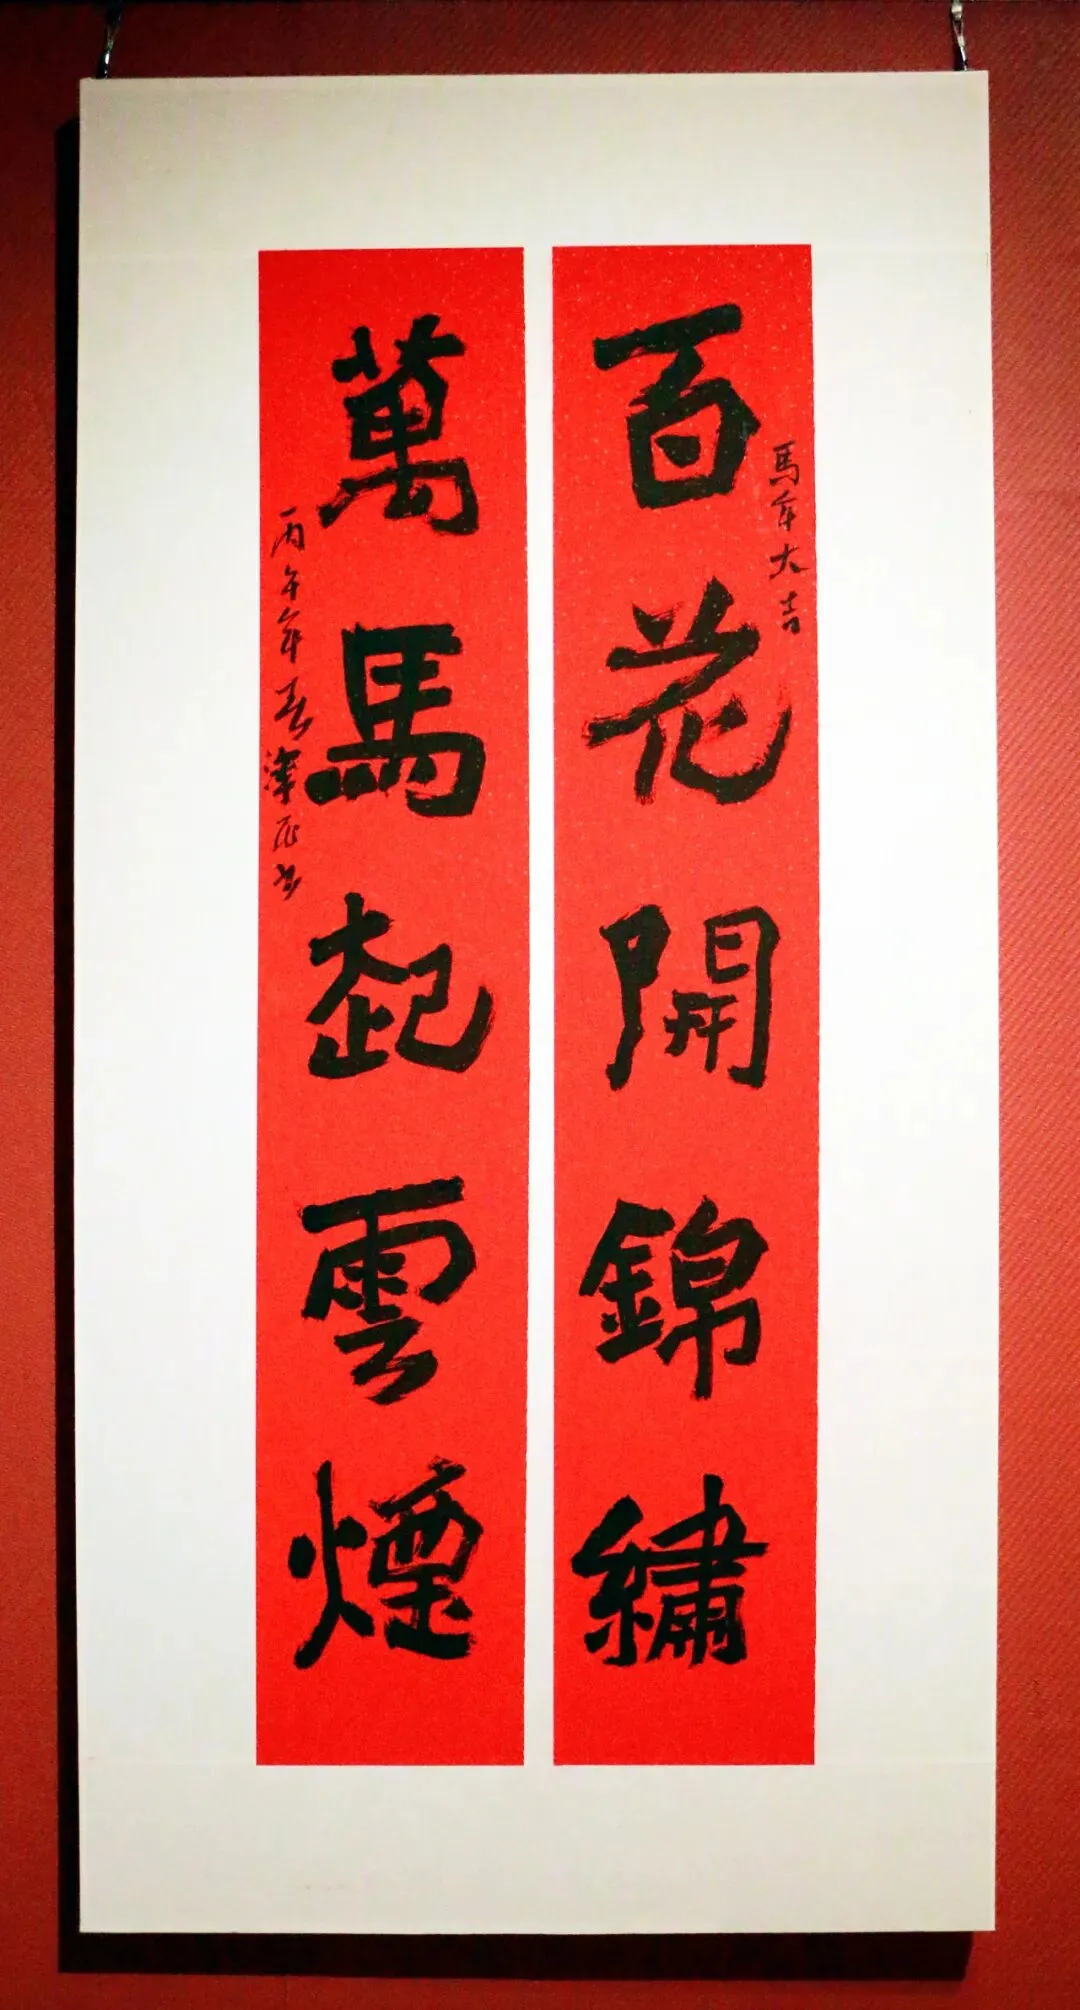 百花開錦繡
馬年大吉
萬馬起雲煙
丙午年春